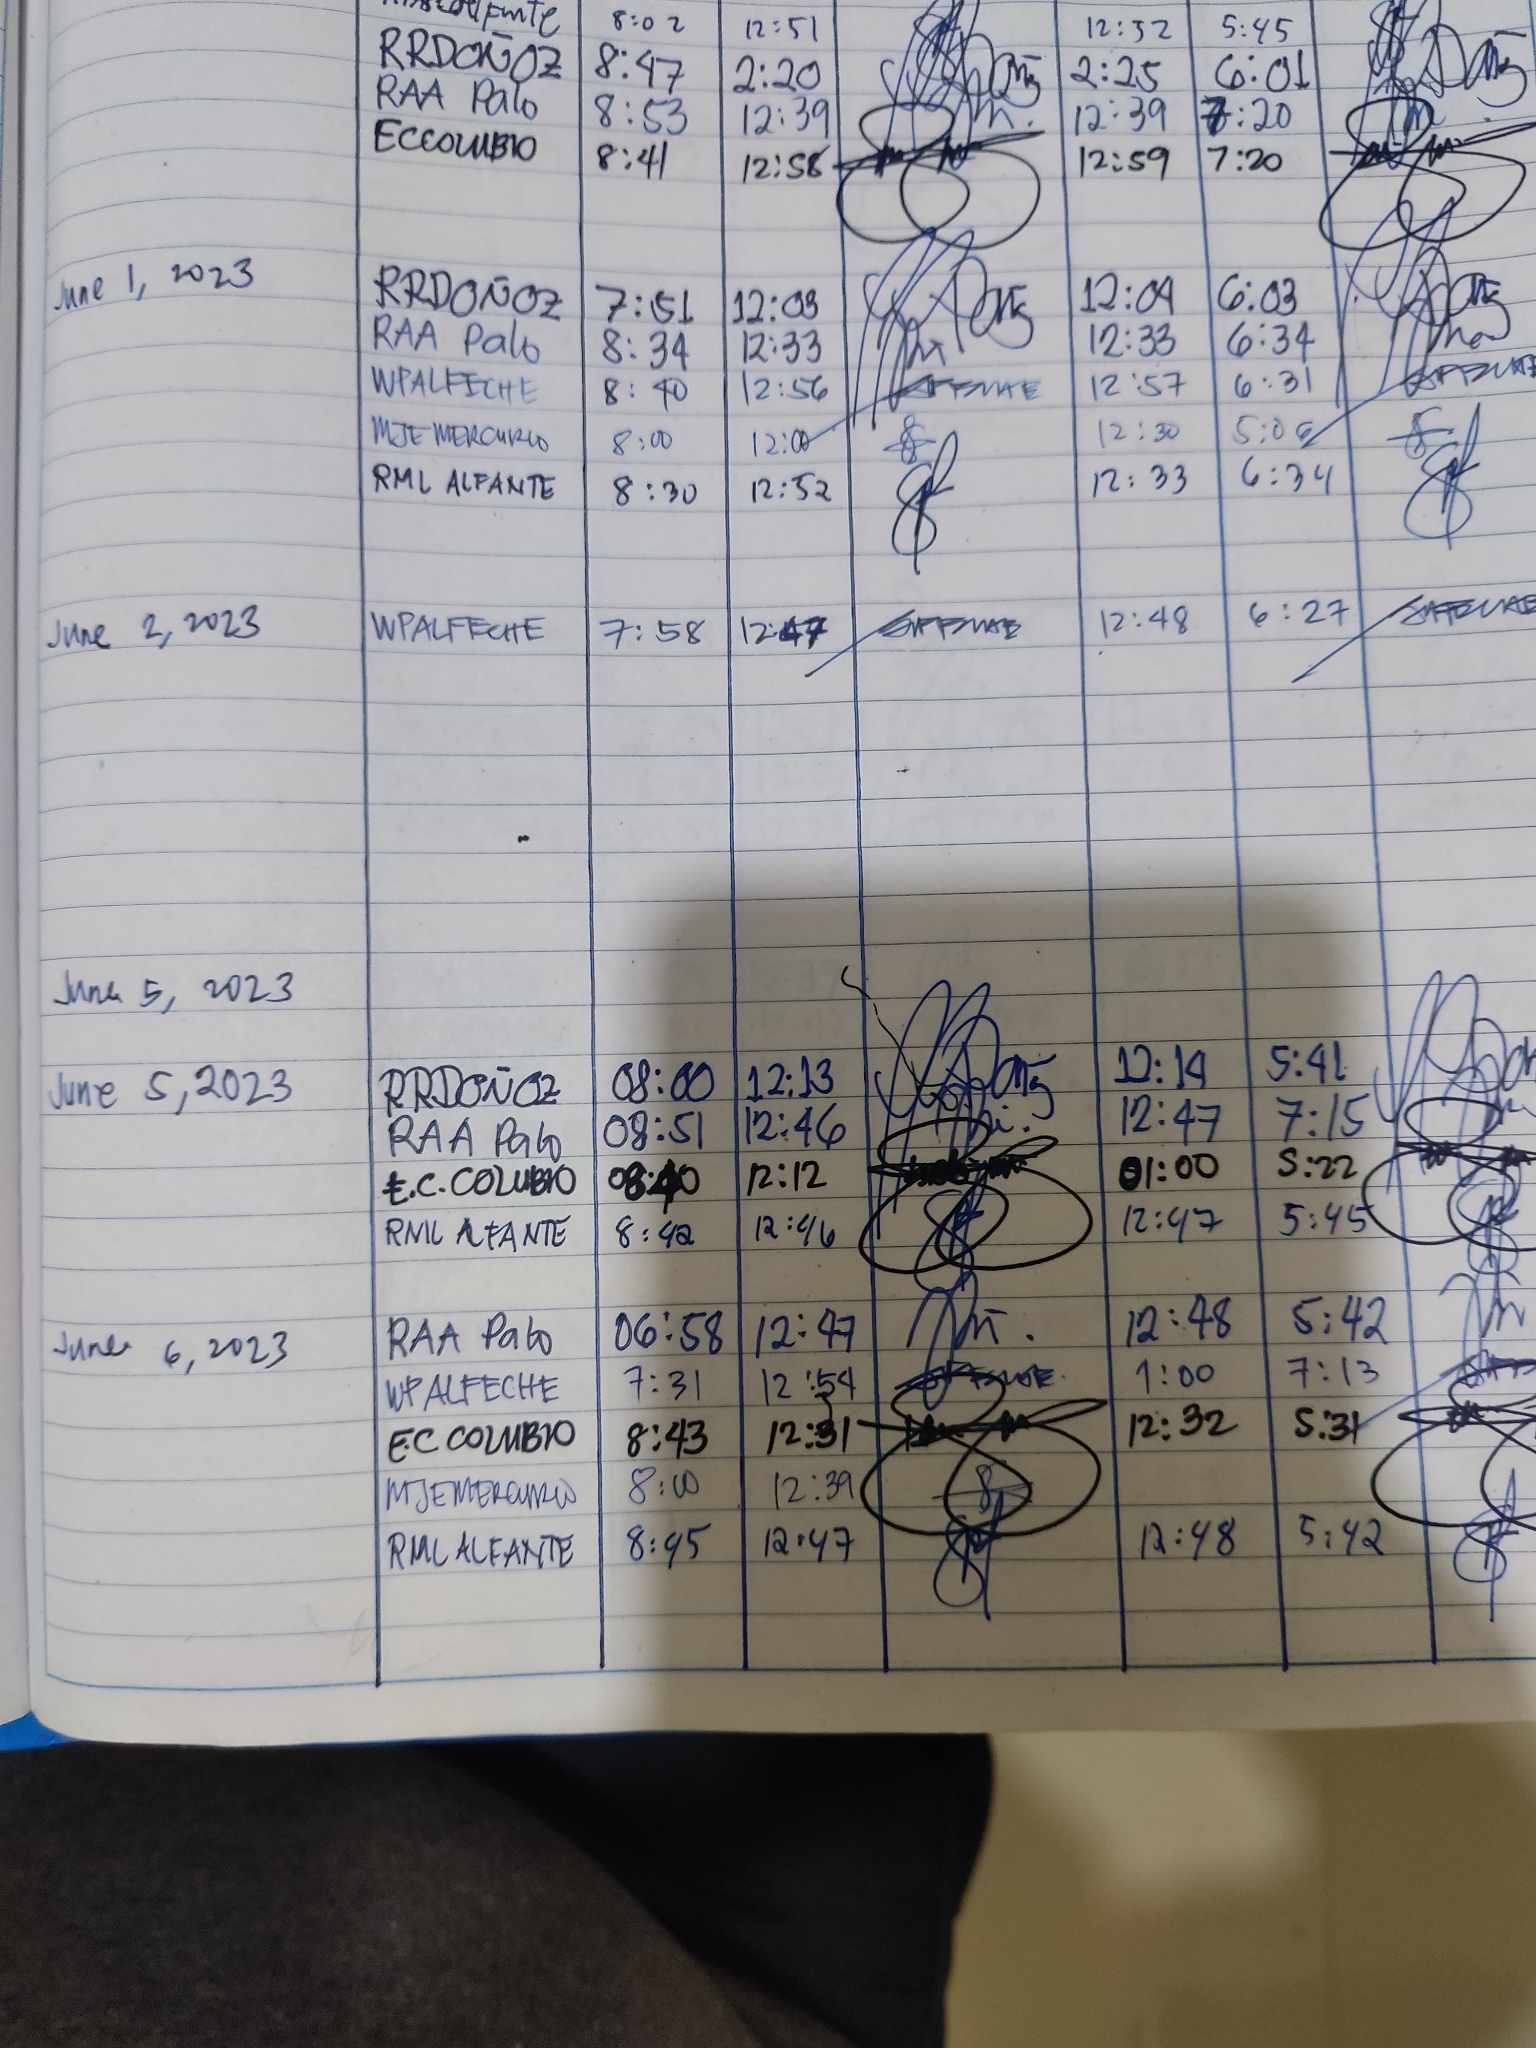 8:02 12:51 12:52 5:45
RRDOÑOZ 8:47 2:20 2:25 6:01
RAA Palo 8:53 12:39 12:39 7:20
ECCOLUBIO 8:41 12:58 12:59 7:20
June 1, 2023 RRDOÑOZ 7:51 12:03 12:04 6:03
RAA Palo 8:34 12:33 12:33 6:34
WPALFECHE 8:40 12:56 12:57 6:31
MJEMERCURIO 8:00 12:00 12:30 5:06
RML ALFANTE 8:30 12:52 12:33 6:34
June 2, 2023 WPALFECHE 7:58 12:47 12:48 6:27
June 5, 2023
June 5, 2023 RRDOÑOZ 08:00 12:13 12:14 5:41
RAA Palo 08:51 12:46 12:47 7:15
E.C.COLUBIO 08:40 12:12 01:00 5:22
RML ALFANTE 8:42 12:46 12:47 5:45
June 6, 2023 RAA Palo 06:58 12:47 12:48 5:42
WPALFECHE 7:31 12:54 1:00 7:13
E.C COLUBIO 8:43 12:31 12:32 5:31
MJEMERCURIO 8:00 12:39
RML ALFANTE 8:45 12:47 12:48 5:42